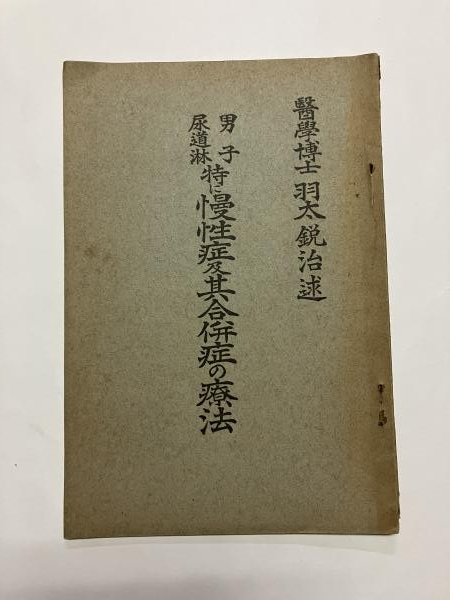 醫學博士 羽太鋭治述
男子
尿道淋
特に慢性症及其合併症の療法